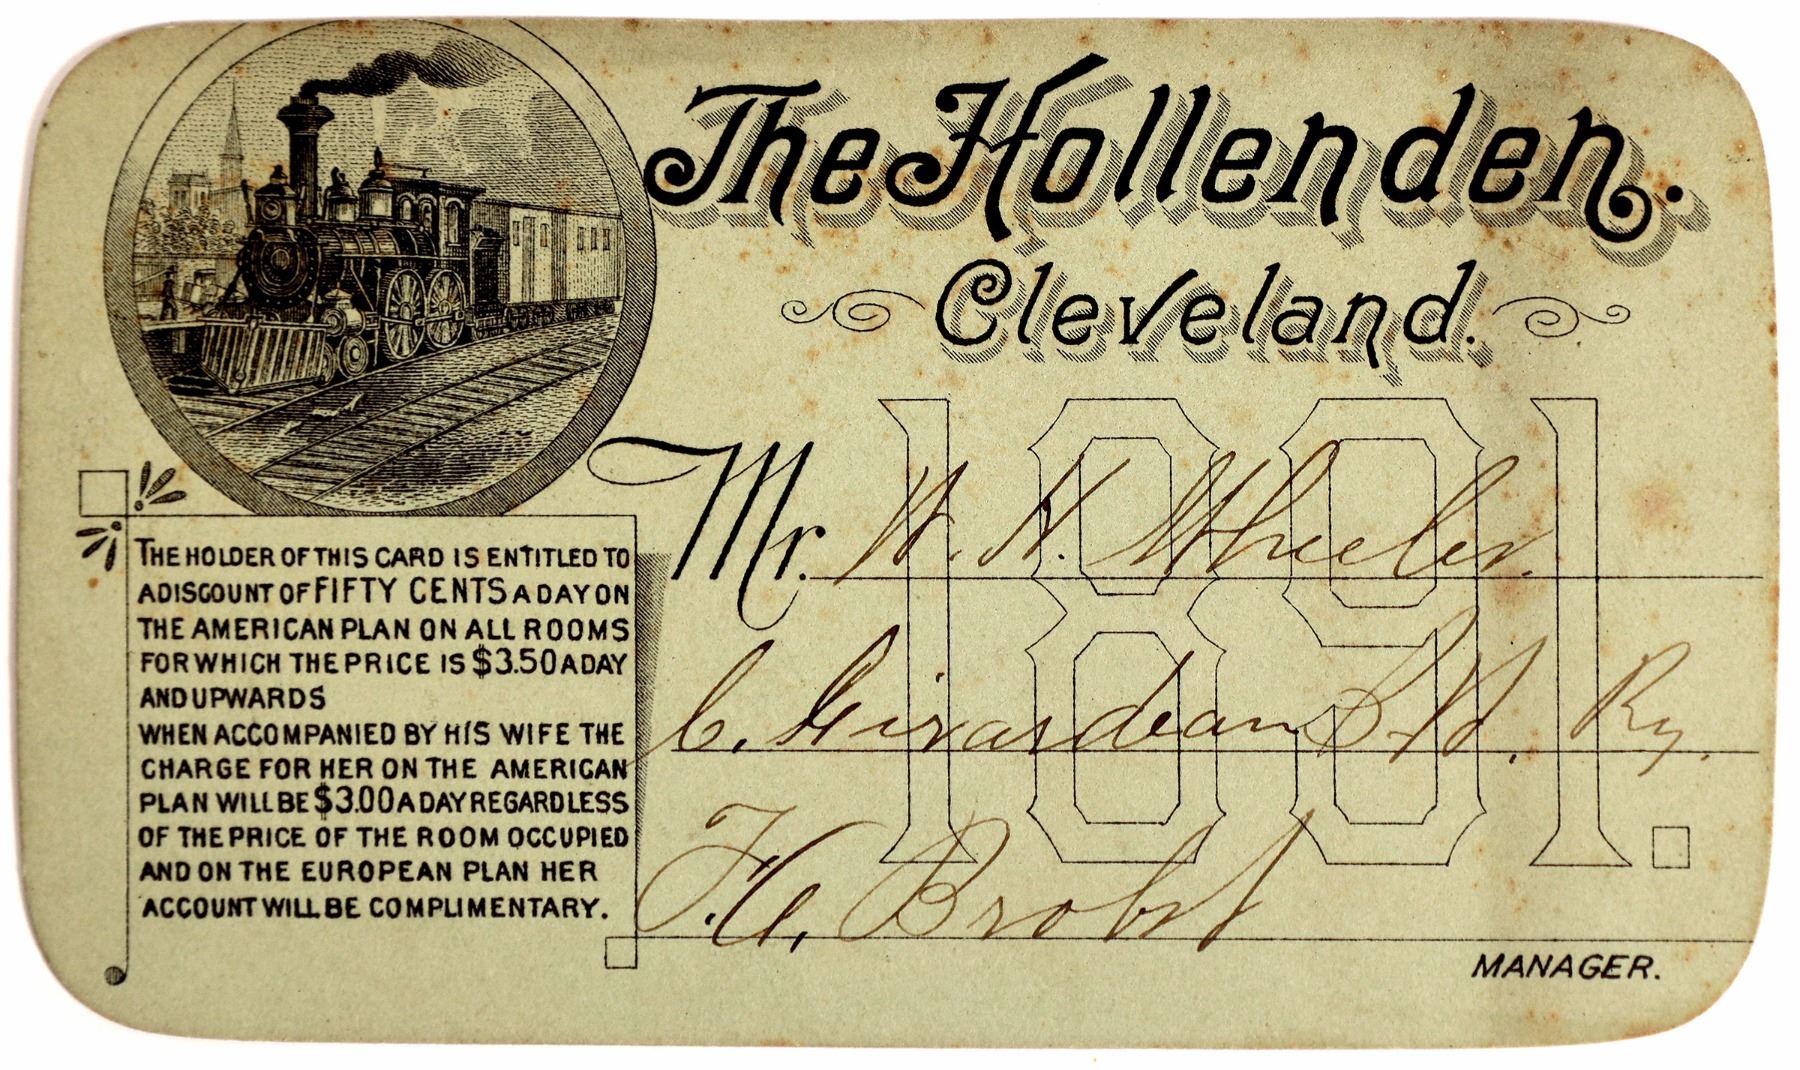 The Hollenden.
Cleveland.
1891.
Mr. W. H. Wheeler.
C. Girardeau S.W. Ry.
F. A. Brobst
MANAGER.
THE HOLDER OF THIS CARD IS ENTITLED TO
A DISCOUNT OF FIFTY CENTS A DAY ON
THE AMERICAN PLAN ON ALL ROOMS
FOR WHICH THE PRICE IS $3.50 A DAY
AND UPWARDS
WHEN ACCOMPANIED BY HIS WIFE THE
CHARGE FOR HER ON THE AMERICAN
PLAN WILL BE $3.00 A DAY REGARDLESS
OF THE PRICE OF THE ROOM OCCUPIED
AND ON THE EUROPEAN PLAN HER
ACCOUNT WILL BE COMPLIMENTARY.